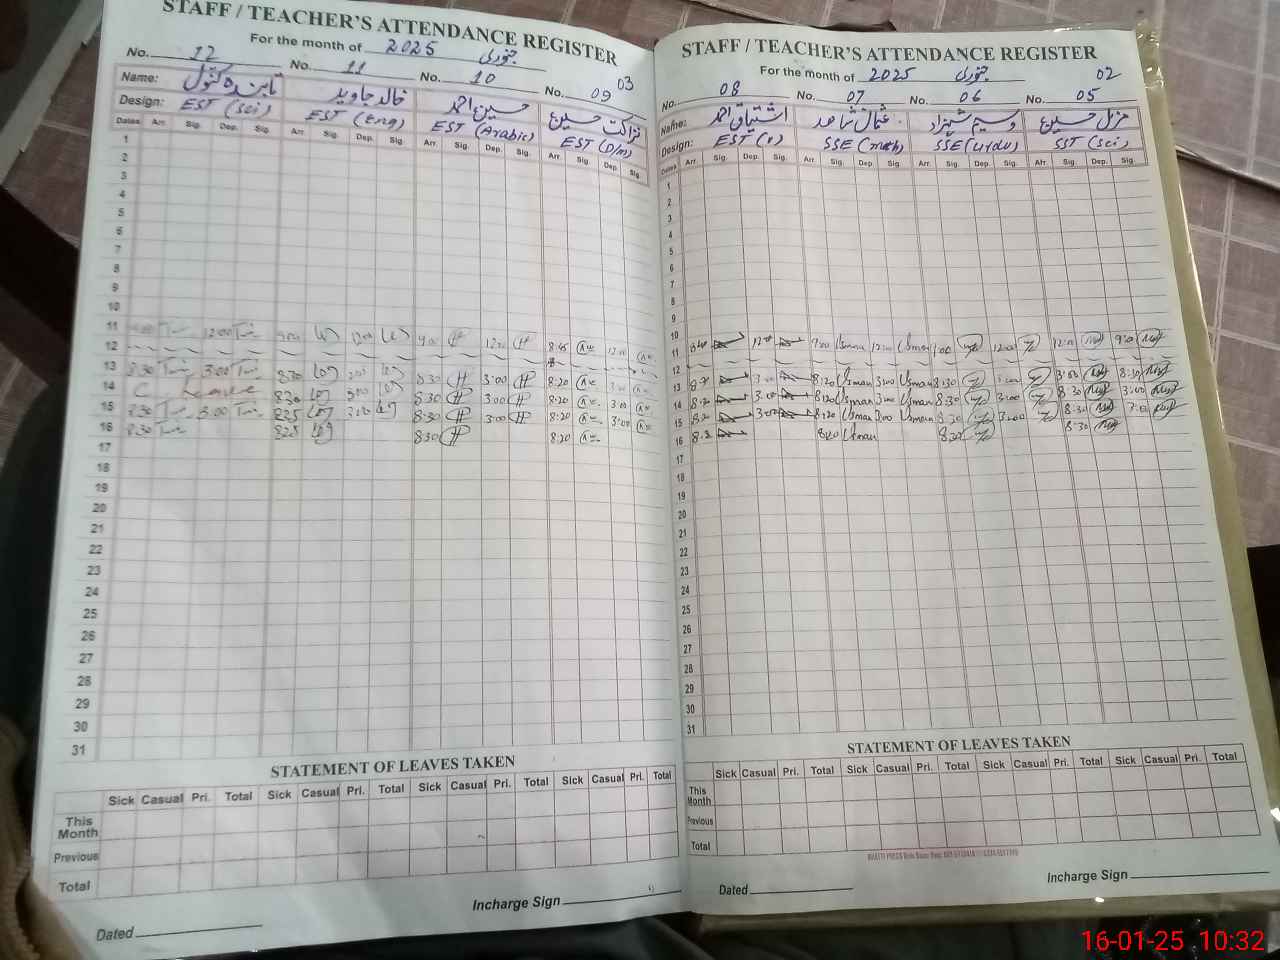 STAFF / TEACHER'S ATTENDANCE REGISTER
For the month of 2025 جنوری
No. 12 No. 11 No. 10 No. 09 03
Name: تابندہ کنول خالد جاوید حسین احمد نزاکت حسین
Design: EST (Sci) EST (Eng) EST (Arabic) EST (D/m)
Dates Arr. Sig. Dep. Sig. Arr. Sig. Dep. Sig. Arr. Sig. Dep. Sig. Arr. Sig. Dep. Sig.
1
2
3
4
5
6
7
8
9
10
11 12:00 9:00 12:00 8:45 12:00
12
13 8:30 3:00 8:30 3:00 8:30 3:00 8:20 3:00
14 C Leave 8:30 3:00 8:30 3:00 8:20 3:00
15 8:30 3:00 8:25 3:00 8:30 3:00 8:20 3:00
16 8:30 8:25 8:30 8:20
17
18
19
20
21
22
23
24
25
26
27
28
29
30
31
STATEMENT OF LEAVES TAKEN
Sick Casual Pri. Total Sick Casual Pri. Total Sick Casual Pri. Total Sick Casual Pri. Total
This Month
Previous
Total
Dated Incharge Sign
STAFF / TEACHER'S ATTENDANCE REGISTER
For the month of 2025 جنوری 02
No. 08 No. 07 No. 06 No. 05
Name: اشتیاق احمد عثمان شاہد وسیم شہزاد مزمل حسین
Design: EST (v) SSE (math) SSE (Urdu) SST (Sci)
Dates Arr. Sig. Dep. Sig. Arr. Sig. Dep. Sig. Arr. Sig. Dep. Sig. Arr. Sig. Dep. Sig.
1
2
3
4
5
6
7
8
9
10
11 9:00 Usman 12:00 Usman 12:00 9:00
12
13 3:00 8:20 Usman 3:00 Usman 8:30 3:00 8:30
14 8:20 3:00 8:20 Usman 3:00 Usman 8:30 3:00 8:30 3:00
15 8:20 3:00 8:20 Usman 3:00 Usman 8:30 3:00 8:30 3:00
16 8:20 Usman 8:30 8:30
17
18
19
20
21
22
23
24
25
26
27
28
29
30
31
STATEMENT OF LEAVES TAKEN
Sick Casual Pri. Total Sick Casual Pri. Total Sick Casual Pri. Total Sick Casual Pri. Total
This Month
Previous
Total
Dated Incharge Sign
16-01-25 10:32